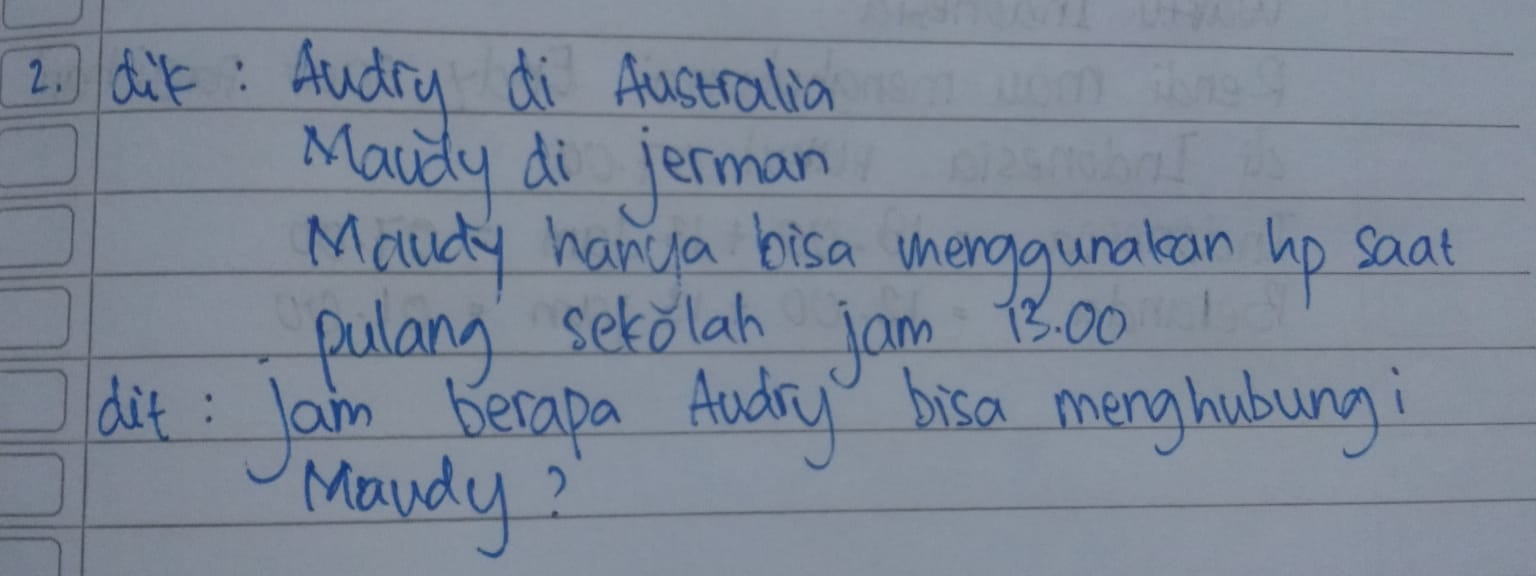 2. dik : Audry di Australia
Maudy di jerman
Maudy hanya bisa menggunakan hp saat
pulang sekolah jam 13.00
dit : Jam berapa Audry bisa menghubungi
Maudy ?